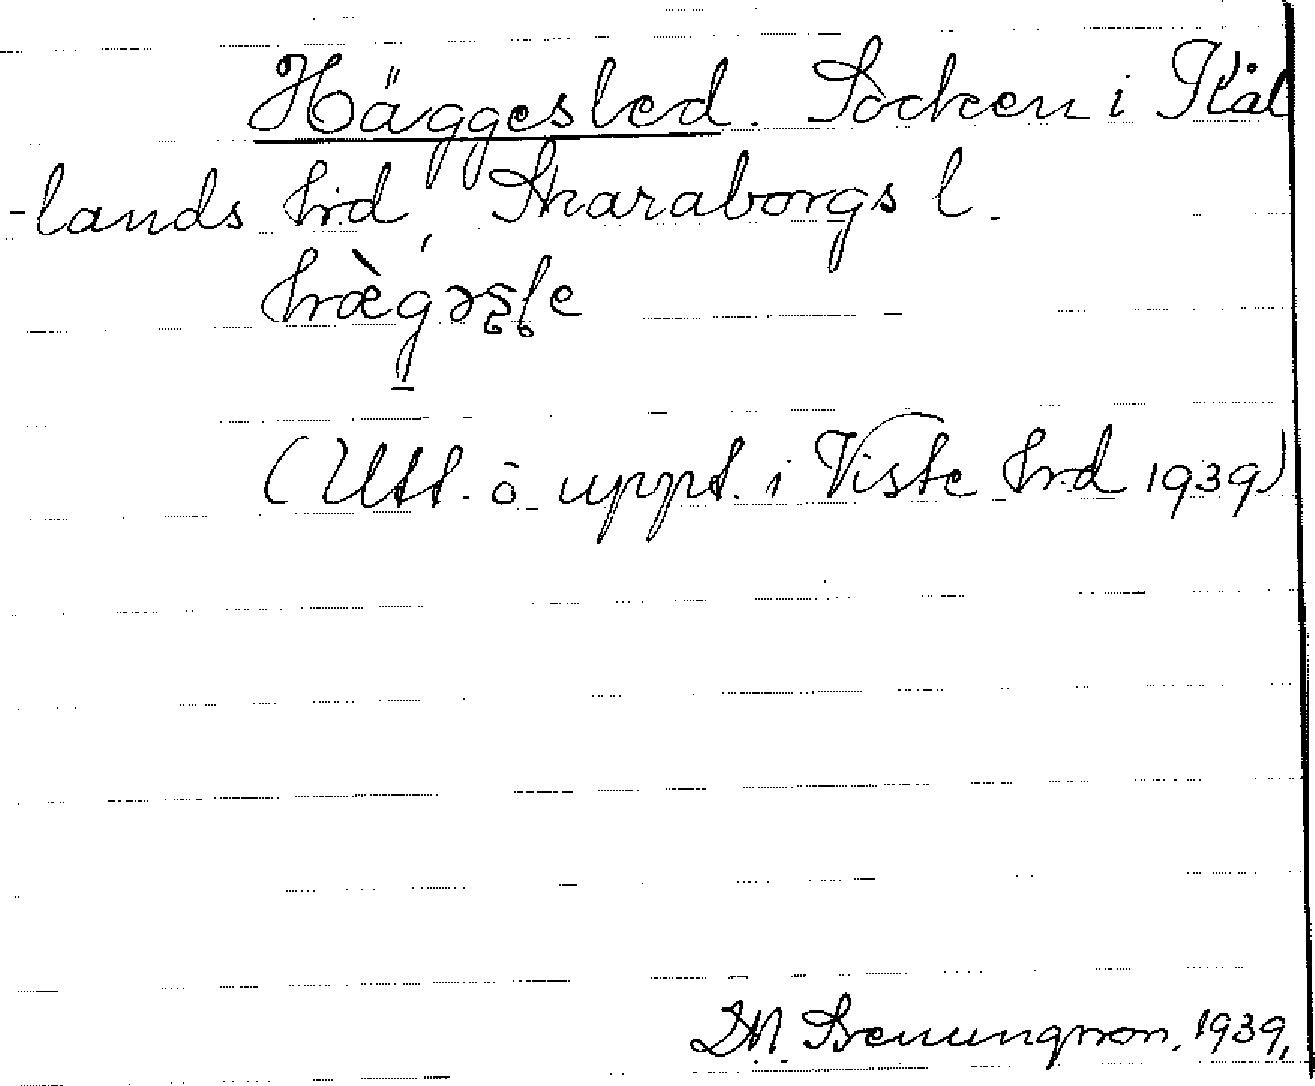 Häggesled. Socken i Kål
-lands hrd, Skaraborgs l.
hæ̀gəsle
(Utt. o uppt. i Viste hrd 1939)
1939,